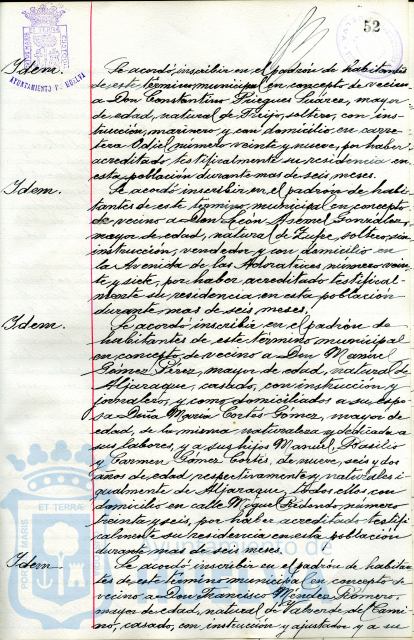 52
AYUNTAMIENTO DE HUELVA
Idem. Se acordó inscribir en el padrón de habitantes
de este término municipal en concepto de vecino
a Don Constantino Piegues Suárez, mayor
de edad, natural de soltero, con ins-
trucción, marinero y con domicilio en carre-
tera Odiel número veinte y nueve, por haber
acreditado testifical su residencia en
esta población durante mas de seis meses.
Idem. Se acordó inscribir en el padrón de habi-
tantes de este término municipal en concepto
de vecino a Don León González,
mayor de edad, natural de soltero, sin
instrucción, vendedor y con domicilio en
la Avenida de las Adoratrices número vein-
te y siete, por haber acreditado testifical-
mente su residencia en esta población
durante mas de seis meses.
Idem. Se acordó inscribir en el padrón de
habitantes de este término municipal
en concepto de vecino a Don Manuel
Gómez Pérez, mayor de edad, natural de
Aljaraque, casado, con instrucción y
jornalero, y como domiciliados a su espo-
sa Doña María Cortés Gómez, mayor de
edad, de la misma naturaleza y dedicada a
sus labores, y a sus hijos Manuel, Basilio
y Carmen Gómez Cortés, de nueve, seis y dos
años de edad respectivamente y naturales i-
gualmente de Aljaraque, todos ellos con
domicilio en calle Miguel Redondo número
treinta y seis, por haber acreditado testifi-
calmente su residencia en esta población
durante mas de seis meses.
Idem. Se acordó inscribir en el padrón de habitan-
tes de este término municipal en concepto de
vecino a Don Francisco Méndez Romero,
mayor de edad, natural de Valverde del Cami-
no, casado, con instrucción y ajustador y a su
PORTUS MARIS ET TERRAE
Ayuntamiento de